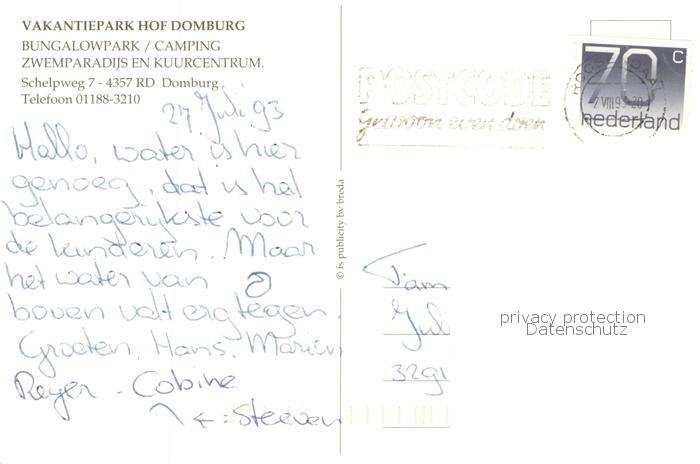 VAKANTIEPARK HOF DOMBURG
BUNGALOWPARK / CAMPING
ZWEMPARADIJS EN KUURCENTRUM.
Schelpweg 7 - 4357 RD Domburg
Telefoon 01188-3210
27 Juli 93
Hallo, water is hier
genoeg, dat is het
belangerijkste voor
de kinderen. Maar
het water van
boven valt erg tegen.
Groeten, Hans, Mariën
Reyer - Cobine
Steeven
© fs publicity bv breda
POSTCODE
gewoon even doen
70 c
nederland
Fam
Jul
3291
privacy protection
Datenschutz